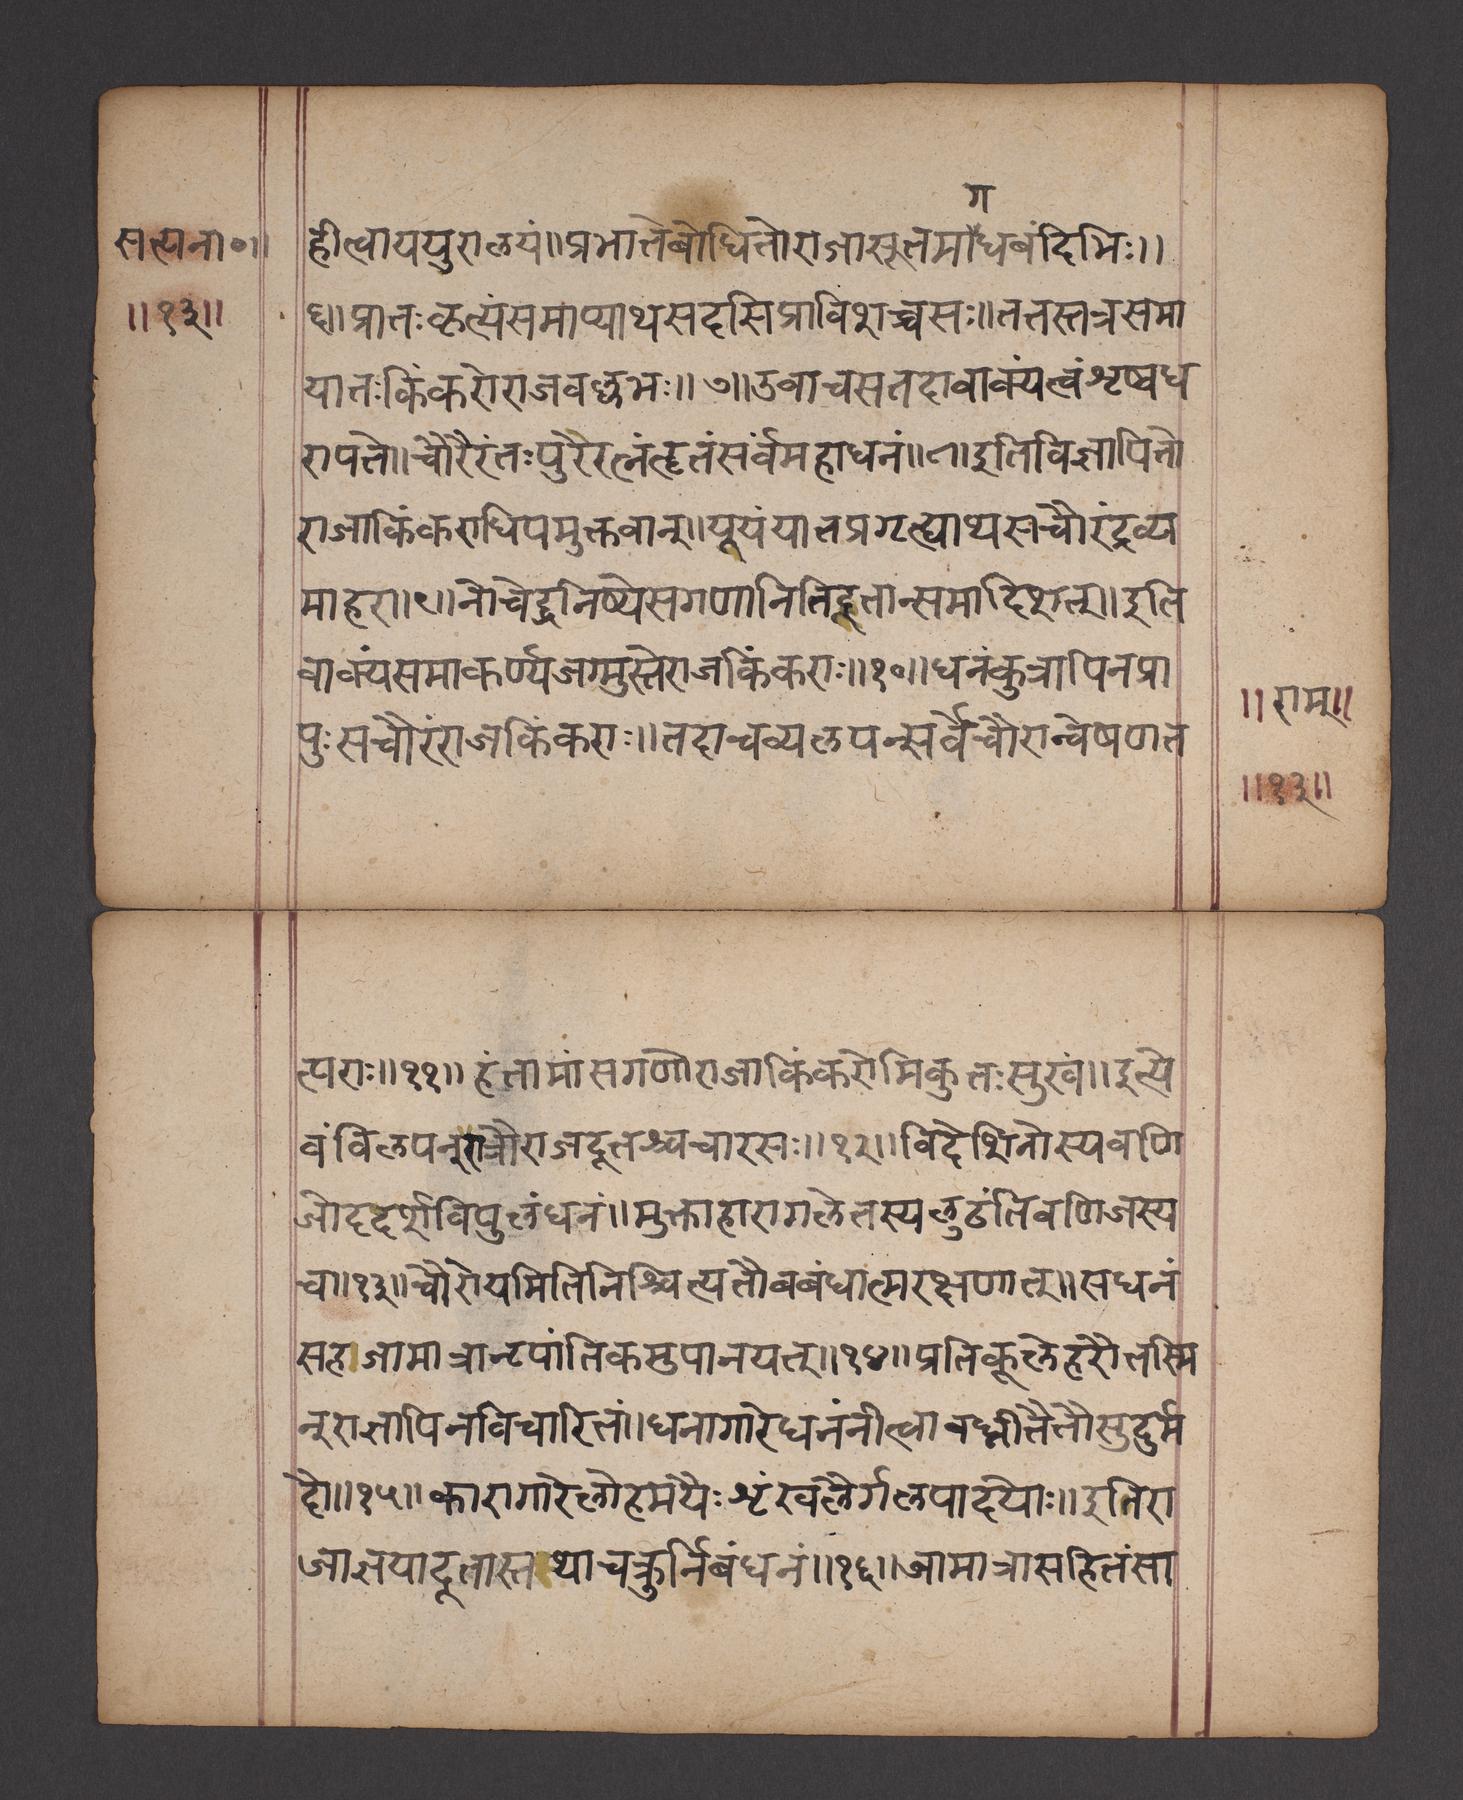 सत्यना०॥
॥१३॥
ग
हीत्वाययुरालयं॥प्रभातेबोधितोराजासूतमाधबंदिभिः॥
६॥प्रातःकृत्यंसमाप्याथसदसिप्राविशच्चसः॥ततस्तत्रसमा
यातःकिंकरोराजवल्लभः॥७॥उवाचसतदावाक्यंत्वंशृष्वध
रापते॥चौरैरंतःपुरैरत्नंत्हृतंसर्वंमहाधनं॥८॥इतिविज्ञापितो
राजाकिंकराधिपमुक्तवान्॥यूयंयातप्रगृत्ह्याथसचौरंद्रव्य
माहर॥९॥नोचेद्धनिष्येसगणानितिदूतान्समादिशत्॥इति
वाक्यंसमाकर्ण्यजग्मुस्तेराजकिंकराः॥१०॥धनंकुत्रापिनप्रा
पुःसचौरंराजकिंकराः॥तदाचव्यलपन्सर्वेचौरान्वेषणत
॥राम॥
॥१३॥
त्पराः॥११॥हंतामांसगणौराजाकिंकरोमिकुतःसुखं॥इत्ये
वंविलपन्रात्रौराजदूतश्चचारसः॥१२॥विदेशिनोस्यवणि
जोददर्शविपुलंधनं॥मुक्ताहारागलेतस्यलुठंतिवणिजस्य
च॥१३॥चौरोयमितिनिश्चित्यतौबबंधात्मरक्षणात्॥सधनं
सहजामात्रान्टपांतिकमुपानयत्॥१४॥प्रतिकूलेहरौतस्मि
न्राज्ञापिनविचारितं॥धनागारेधनंनीत्वाबध्नीतैतौसुदुर्म
दौ॥१५॥कारागारेलोहमयैःशृंखलैर्गलपादयोः॥इतिरा
जाज्ञयादूतास्तथाचक्रुर्निबंधनं॥१६॥जामात्रासहितंसा